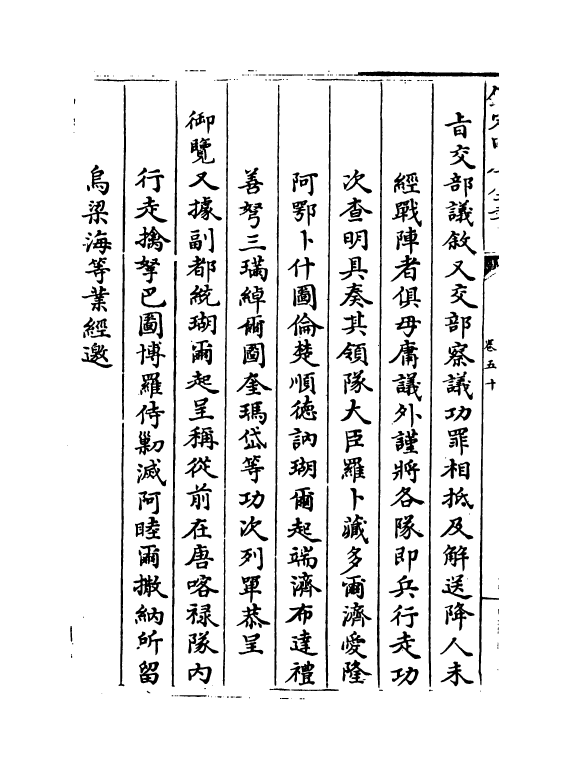 旨交部議敘又交部察議功罪相抵及解送降人未
經戰陣者俱毋庸議外謹將各隊即兵行走功
次查明具奏其領隊大臣羅卜藏多爾濟愛隆
阿鄂卜什圖倫楚順德訥瑚爾起端濟布達禮
善弩三瑞綽爾圖奎瑪岱等功次列單恭呈
御覽又據副都統瑚爾起呈稱從前在唐喀禄隊内
行走擒拏巴圖博羅侍勦滅阿睦爾撒納所留
烏梁海等業經邀
卷五十